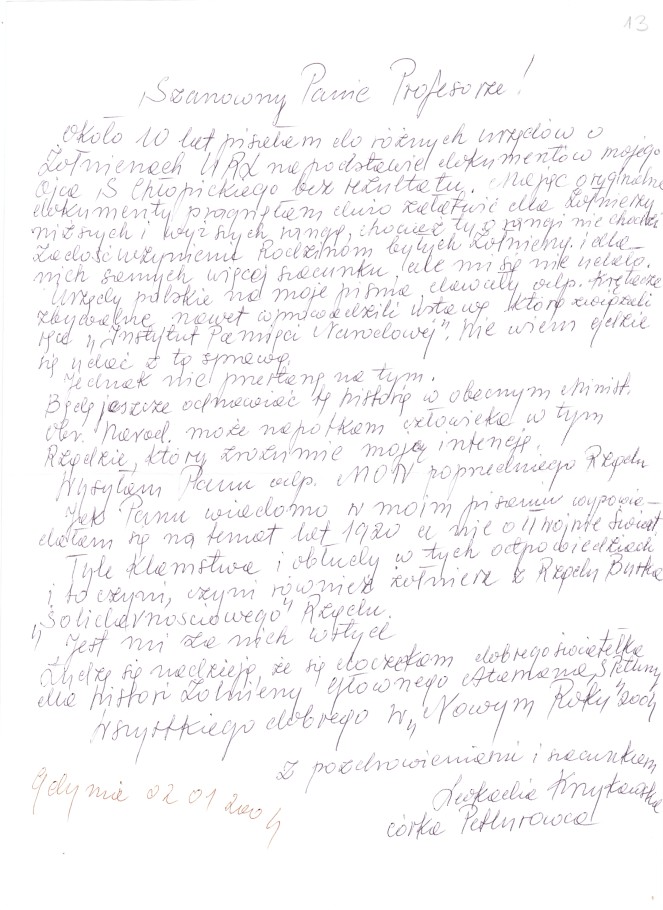 13
Szanowny Panie Profesorze!
Około 10 lat pisałam do różnych urzędów o
Żołnierzach URL na podstawie dokumentów mojego
Ojca S Chłopickiego bez rezultatu. Mając oryginalne
dokumenty pragnęłam dużo załatwić dla Żołnierzy
niższych i wyższych rangą, chociaż tu o rangi nie chodzi
Zadość uczynieniu Rodzinom byłych Żołnierzy i dla
nich samych więcej szacunku, ale mi się nie udało.
Urzędy polskie na moje pisma dawały odp. krętacze
zbywalne nawet wprowadzili Ustawę którą związali
się „Instytut Pamięci Narodowej”. Nie wiem gdzie
się udać z tą sprawą.
Jednak nie przestanę na tym.
Będę jeszcze odnawiać tę historię w obecnym Minist.
Obr. Narod. może napotkam człowieka w tym
Rządzie, który zrozumie moją intencję.
Wysyłam Panu odp. MON poprzedniego Rządu
Jak Panu wiadomo w moim pisaniu wypowia-
dałam się na temat lat 1920 a nie o II wojnie Świat.
Tyle kłamstwa i obłudy w tych odpowiedziach
i to czym, czyni również żołnierz z Rządu Buzka
„Solidarnościowego” Rządu.
Jest mi za nich wstyd
Łudzę się nadzieją, że się doczekam dobrego światełka
dla histori Żołnierzy głównego Atamana S Petlury
Wszystkiego dobrego w „Nowym Roku” 2004
Z pozdrowieniami i szacunkiem
Leokadia
córka Petlurowca
Gdynia 02 01 2004